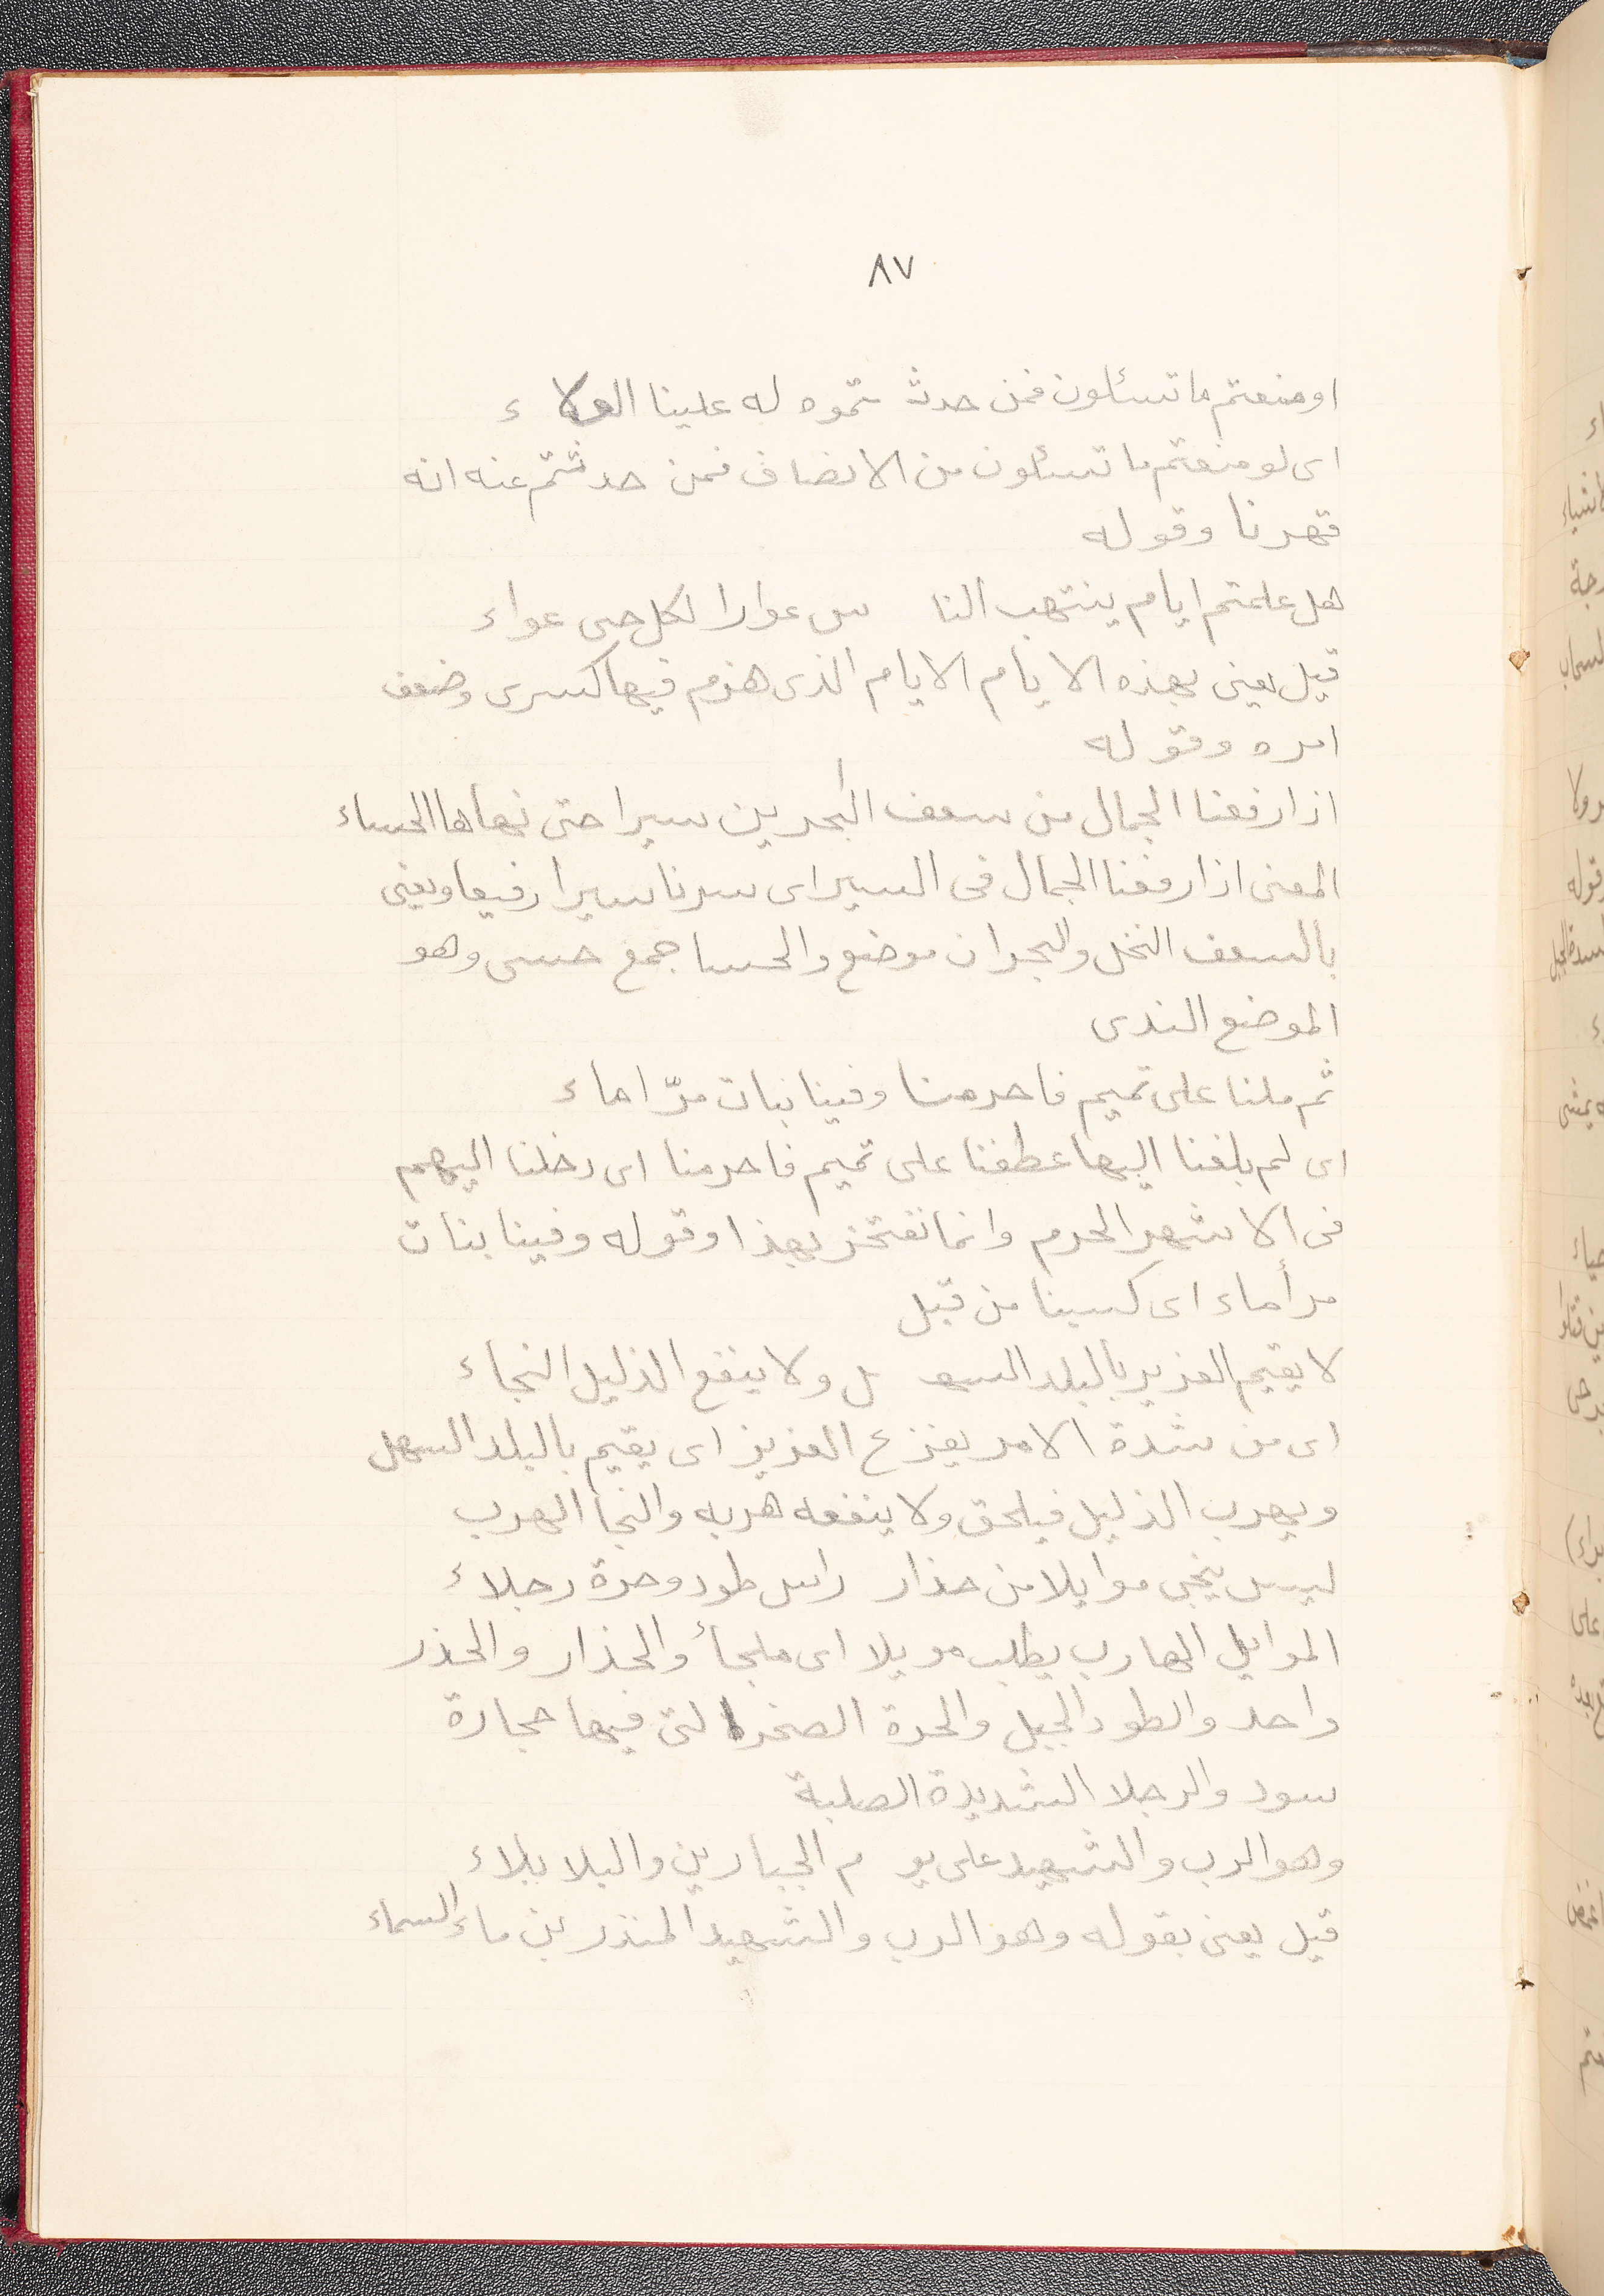 ٨٧
او منعتم ما تسئلون فمن حدث تموه له علينا الولا ء
اى لو منعتم ما تسئلون من الانصاف فمن حدثتم عنه انه
قهرنا وقوله
هل علمتم ايام ينتهب النا س عوارا لكل حى عواء
قيل يعنى بهذه الايام الايام الذى هزم فيها كسرى وضعف
امره وقوله
اذا رفعنا الجمال من سعف البحرين سيرا حتى نهاها الحساء
المعنى اذا رفعنا الجمال فى السير اى سرنا سيرا رفيعا ويعنى
بالسعف النخل والبحران موضع والحسا جمع حسى وهو
الموضع الندى
ثم ملنا على تميم فاحرمنا وفينا بنات مرّ اماء
اى لم بلغنا اليها عطفنا على تميم فاحرمنا اى دخلنا اليهم
فى الاشهر الحرم وانما نفتخر بهذا وقوله وفينا بنات
مر أماء اى كسبنا من قبل
لا يقيم العزيز بالبلد السهـ ل ولا ينفع الذليل النجاء
اى من شدة الامر يفزع العزيز اى يقيم بالبلد السهل
ويهرب الذليل فيلحق ولا ينفعه هربه والنجأ الهرب
ليس ينجى موايلا من حذار راس طود وحرة رجلاء
الموايل الهارب يطلب مويلا اى ملجأ والحذار والحذر
واحد والطود الجبل والحرة الصخرا لتى فيها حجارة
سود والرجلا الشديدة الصلبة
وهو الرب والشهيد على يو م الجبارين والبلا بلاء
قيل يعنى بقوله وهو الرب والشهيد المنذر بن ماء السماء